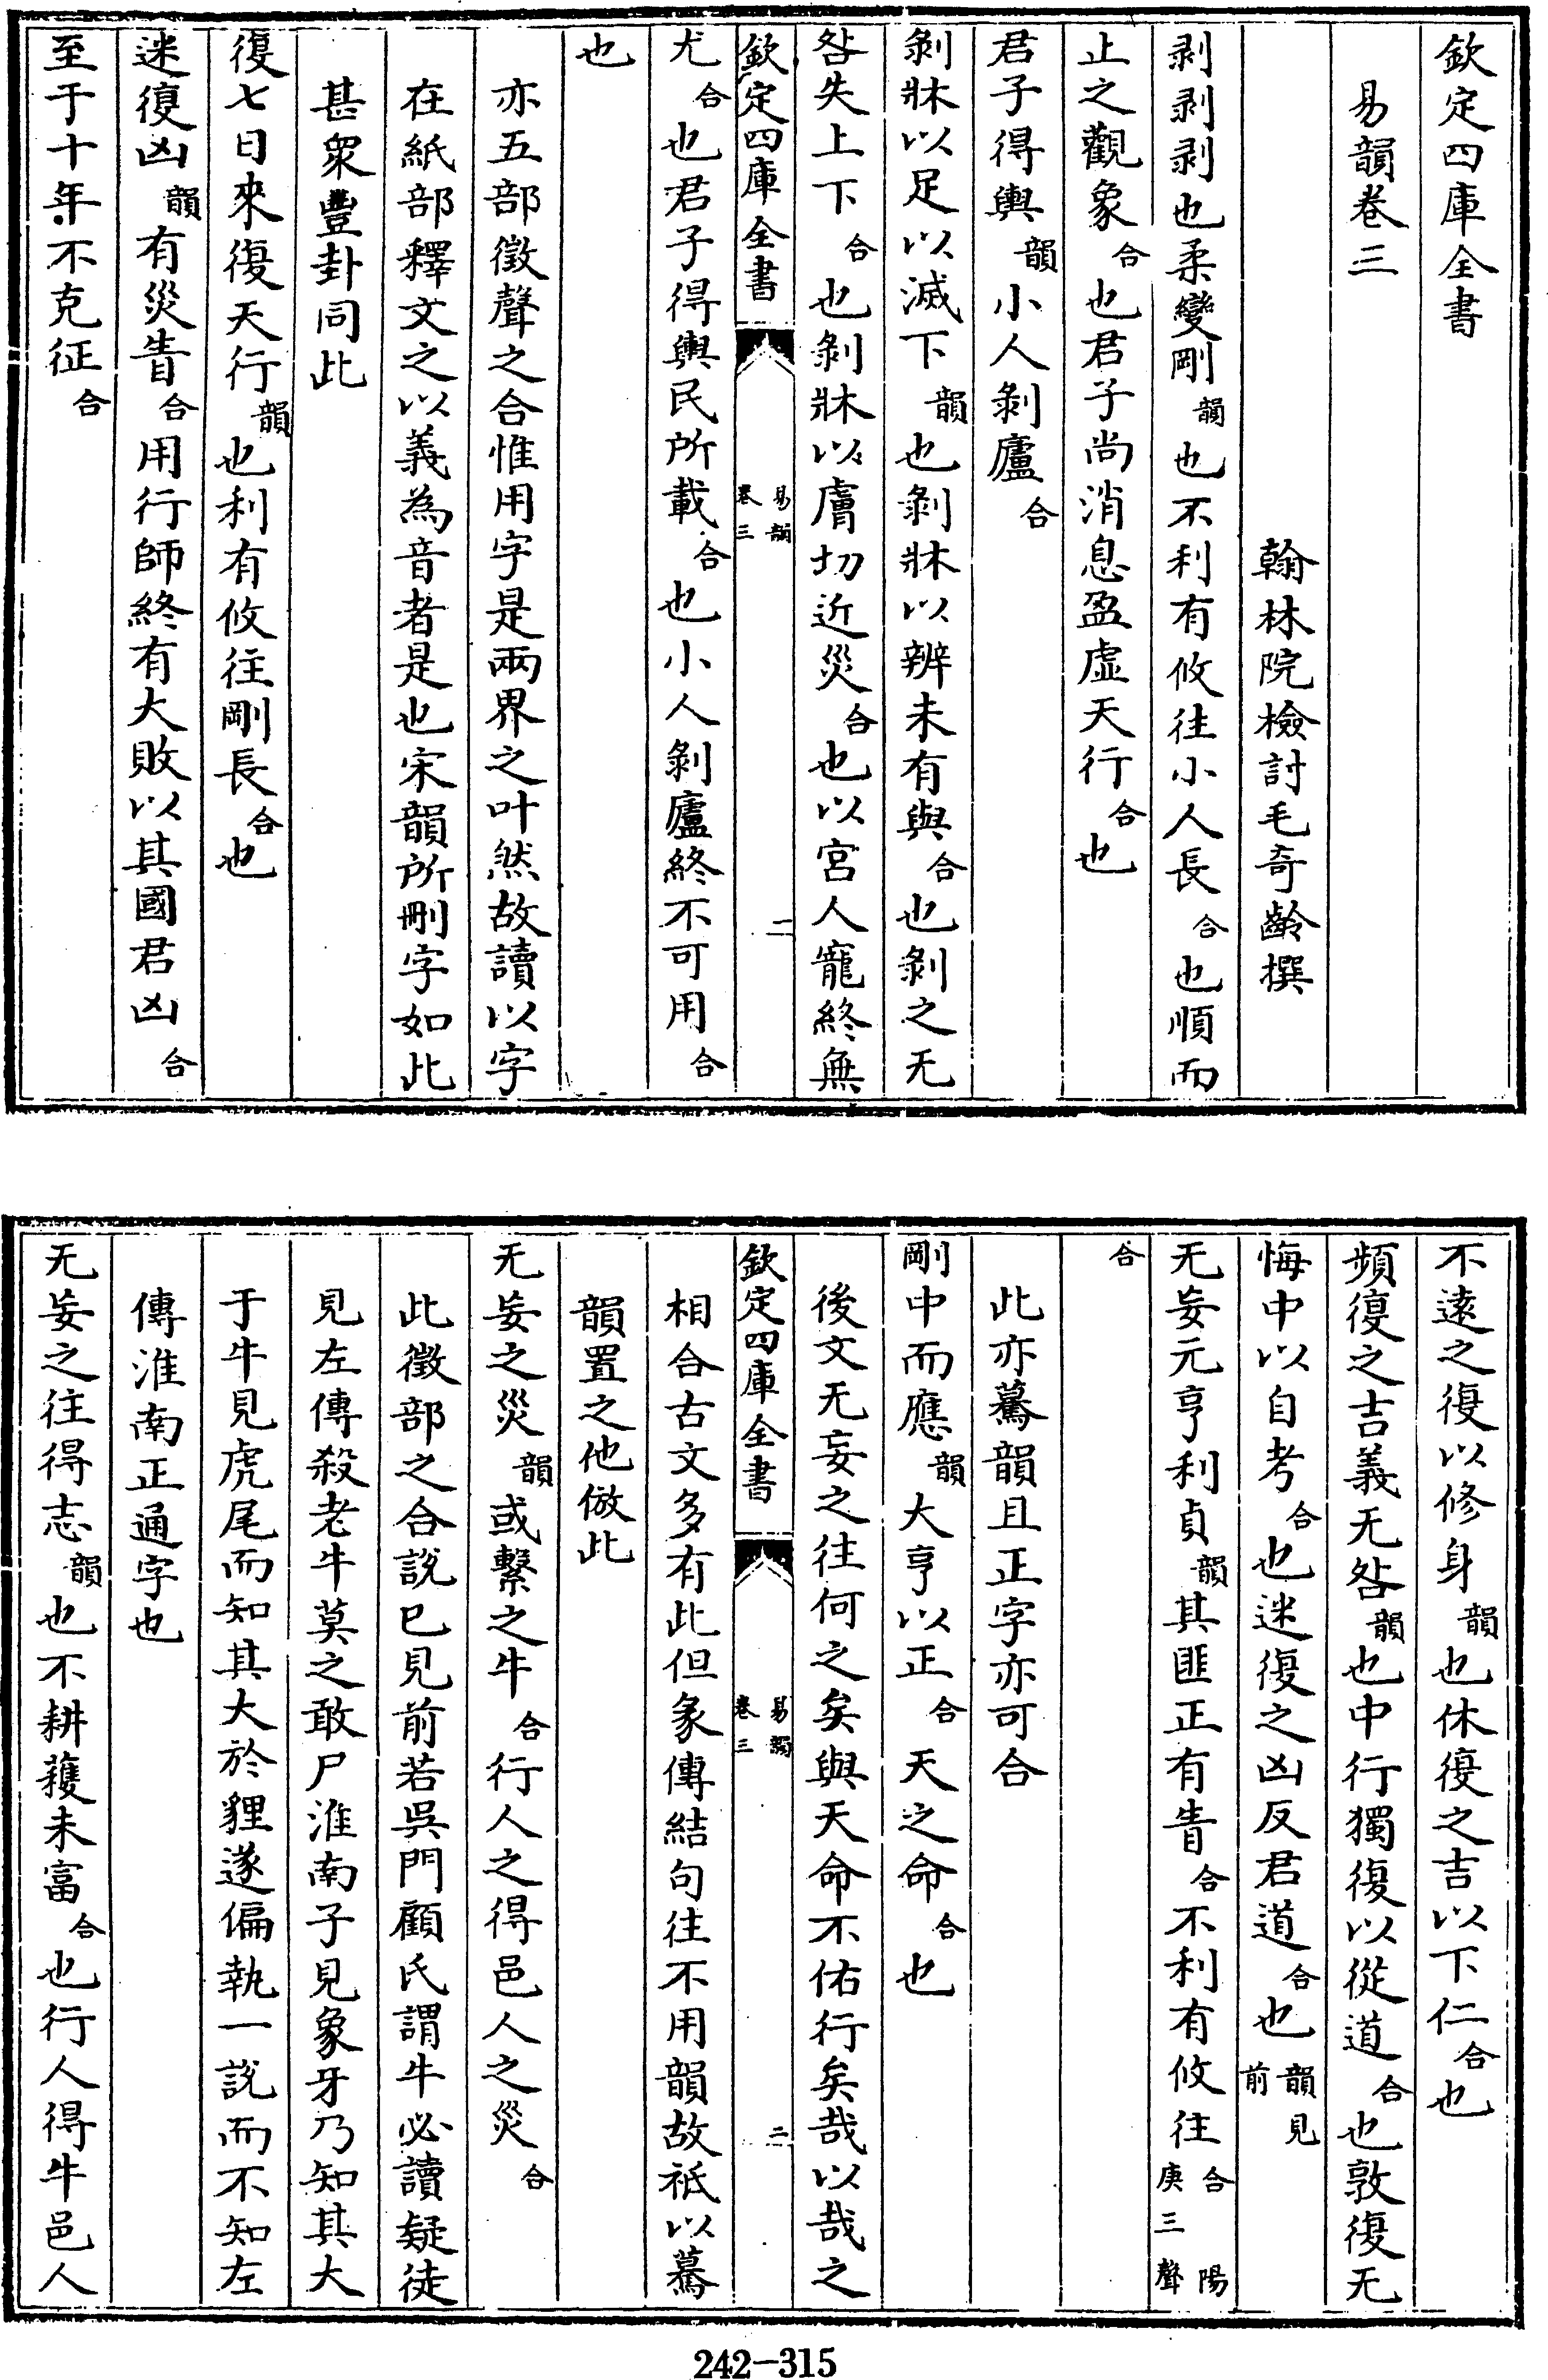 欽定四庫全書
易韻卷三
翰林院檢討毛奇齡撰
剥剥剥也柔變剛韻也不利有攸往小人長合也順而
止之觀象合也君子尚消息盈虛天行合也
君子得輿韻小人剝廬合
剝牀以足以滅下韻也剝牀以辨未有與合也剝之无
咎失上下合也剝牀以膚切近災合也以宮人寵終無
欽定四庫全書
易韻
卷三
一
尤合也君子得輿民所載合也小人剝廬終不可用合
也
亦五部徵聲之合惟用字是兩界之叶然故讀以字
在紙部釋文之以義為音者是也宋韻所刪字如此
甚衆豐卦同此
復七日來復天行韻也利有攸往剛長合也
迷復凶韻有災眚合用行師終有大敗以其國君凶合
至于十年不克征合
不遠之復以修身韻也休復之吉以下仁合也
頻復之吉義无咎韻也中行獨復以從道合也敦復无
悔中以自考合也迷復之凶反君道合也韻見前
无妄元亨利貞韻其匪正有眚合不利有攸往合陽庚三聲
合
此亦驀韻且正字亦可合
剛中而應韻大亨以正合天之命合也
後文无妄之往何之矣與天命不佑行矣哉以哉之
欽定四庫全書
易韻
卷三
二
相合古文多有此但彖傳結句往不用韻故祇以驀
韻置之他倣此
无妄之災韻或繫之牛合行人之得邑人之災合
此徵部之合說已見前若吳門顧氏謂牛必讀疑徒
見左傳殺老牛莫之敢尸淮南子見象牙乃知其大
于牛見虎尾而知其大於貍遂偏執一說而不知左
傳淮南正通字也
无妄之往得志韻也不耕穫未富合也行人得牛邑人
242-315